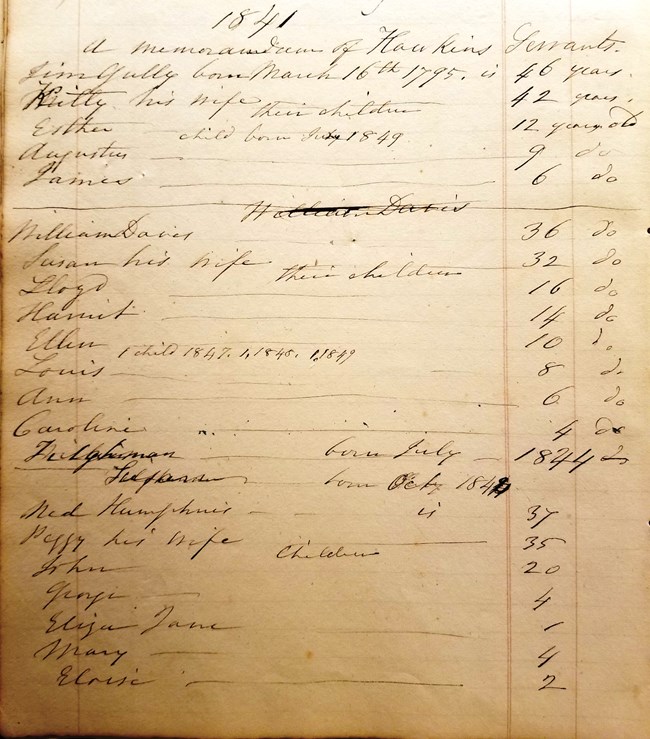 1841
A memorandum of Hawkins Servants.
Jim Gully born March 16th 1795. is 46 years.
Kitty his wife 42 years.
their children
Esther 12 years old
child born July 1849
Augustus 9 do
James 6 do
William Davis
William Davis 36 do
Susan his wife 32 do
their children
Lloyd 16 do
Harriet 14 do
Ellen 10 do
1 child 1847. 1, 1848. 1, 1849
Louis 8 do
Ann 6 do
Caroline 4 do
born July 1844
born Octr 184
Ned Humphries is 37
Peggy his wife 35
Children
John 20
George 4
Eliza Jane 1
Mary 4
Eloise 2